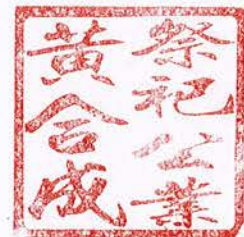 祭祀公業
黃合成